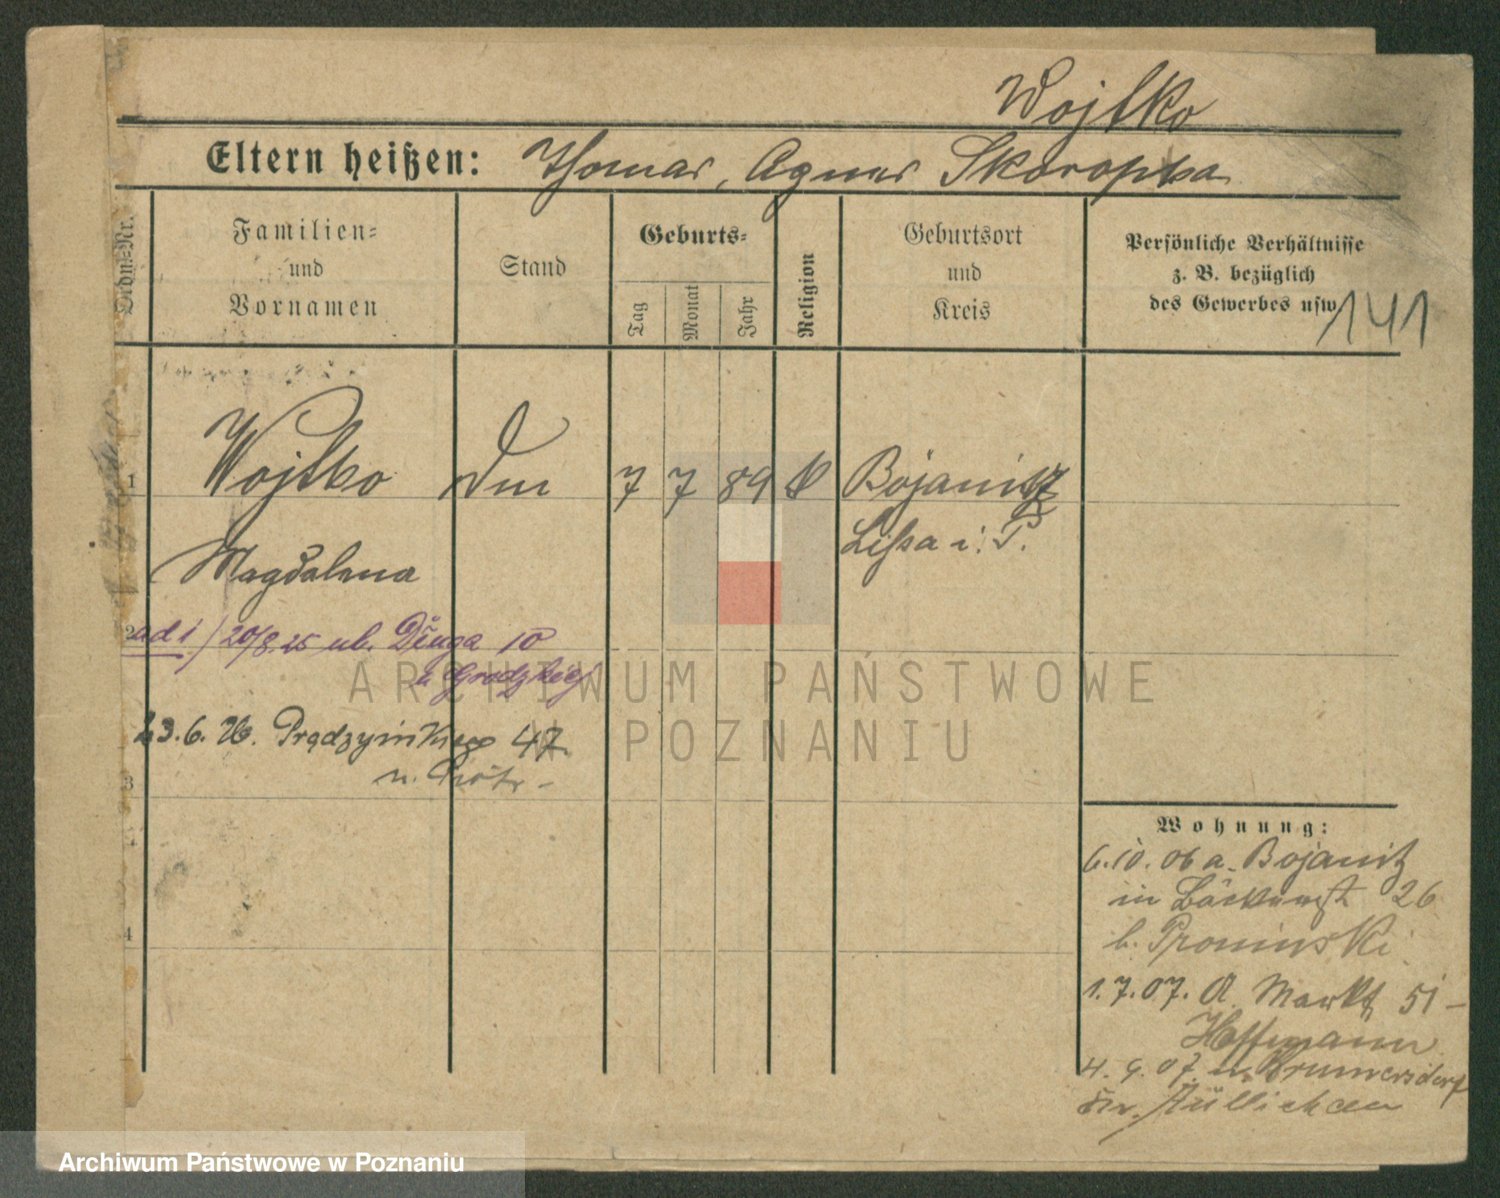 Wojtko
Eltern heißen: Thomas, Agnes Skoropka
Ordn.-Nr.
Familien-
und
Vornamen
Stand
Geburts-
Tag
Monat
Jahr
Religion
Geburtsort
und
Kreis
Persönliche Verhältnisse
z. B. bezüglich
des Gewerbes usw.
141
1 Wojtko 7 7 89 Bojanitz
Lissa i. P.
Magdalena
2 ad 1) 20/8 25 ul. Długa 10
u Grodzkiej
23.6. 26. Prądzyńskiego 47
3
4
Wohnung:
6.10.06 a. Bojanitz
in 26
b. Proninski
1.7.07. A. Markt 51 -
Hoffmann
4. 9. 07. n. Krumersdorf
Kr. Züllichau
ARCHIWUM PAŃSTWOWE
W POZNANIU
Archiwum Państwowe w Poznaniu